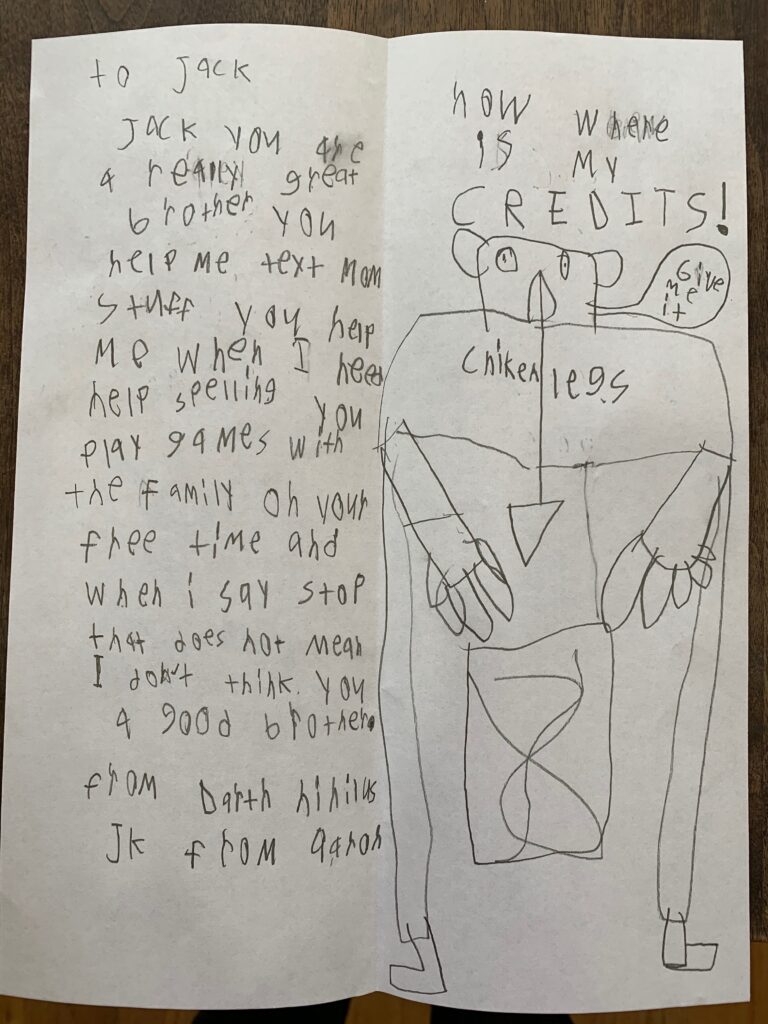 to Jack
Jack you are
a really great
brother you
help me. text mom
stuff you help
me when I need
help spelling you
play games with
the family on your
free time and
when i say stop
that does not mean
I don't think. you
a good brother.
from Darth nihilus
Jk from aaron
now where
is my
CREDITS!
Give
me
it
chiken legs